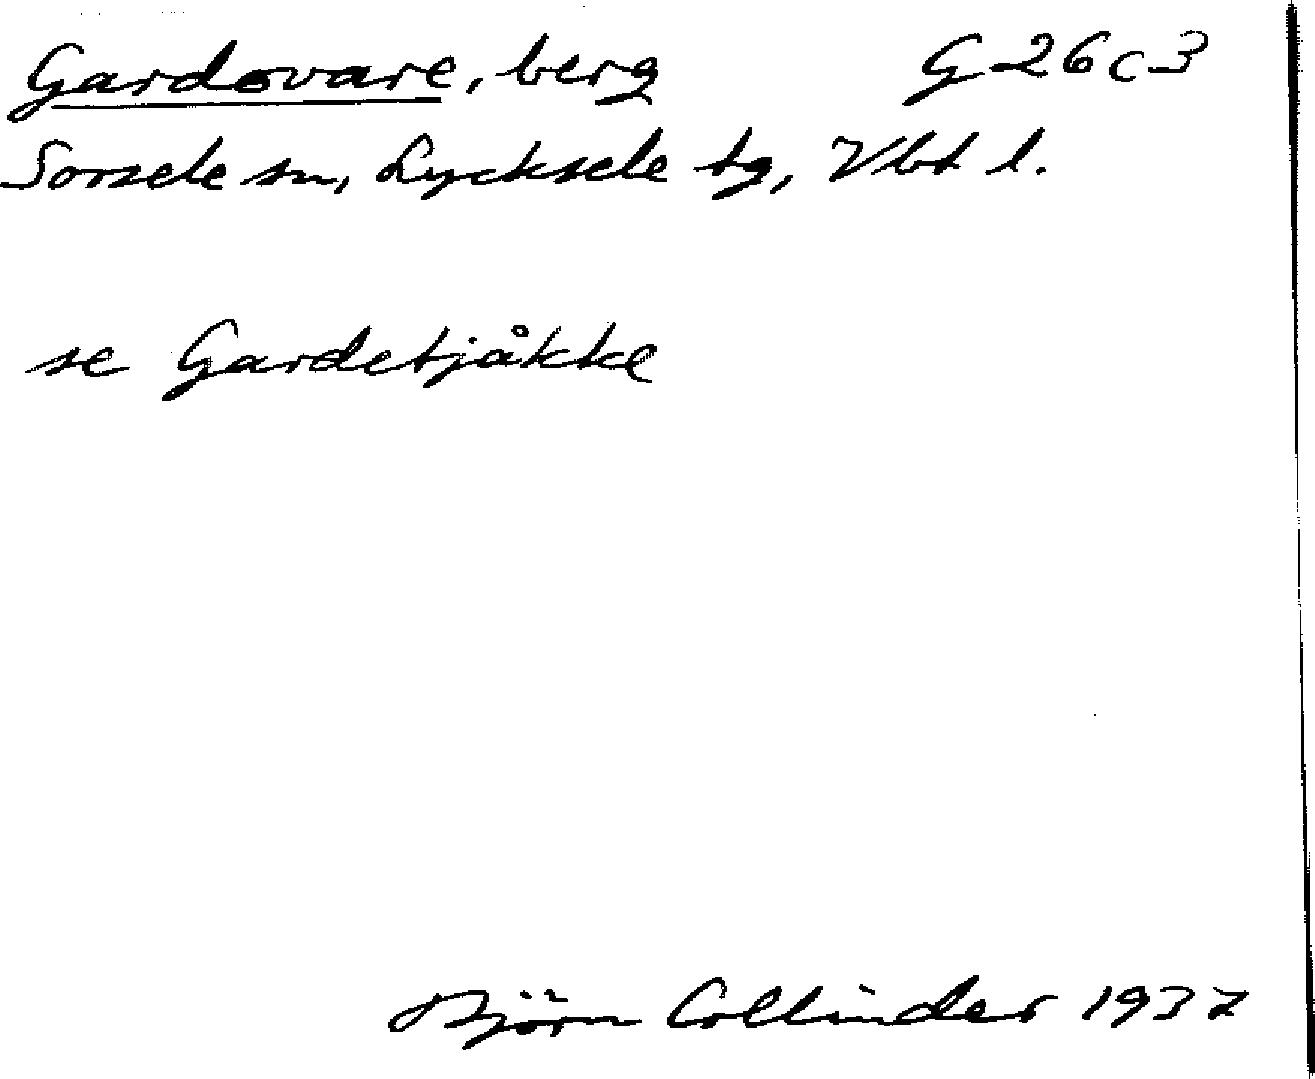 Gardovare, berg G 26 c 3
Sorsele sn, Lycksele tg, Vbt l.
se Gardetjåkke
Björn Collinder 1937